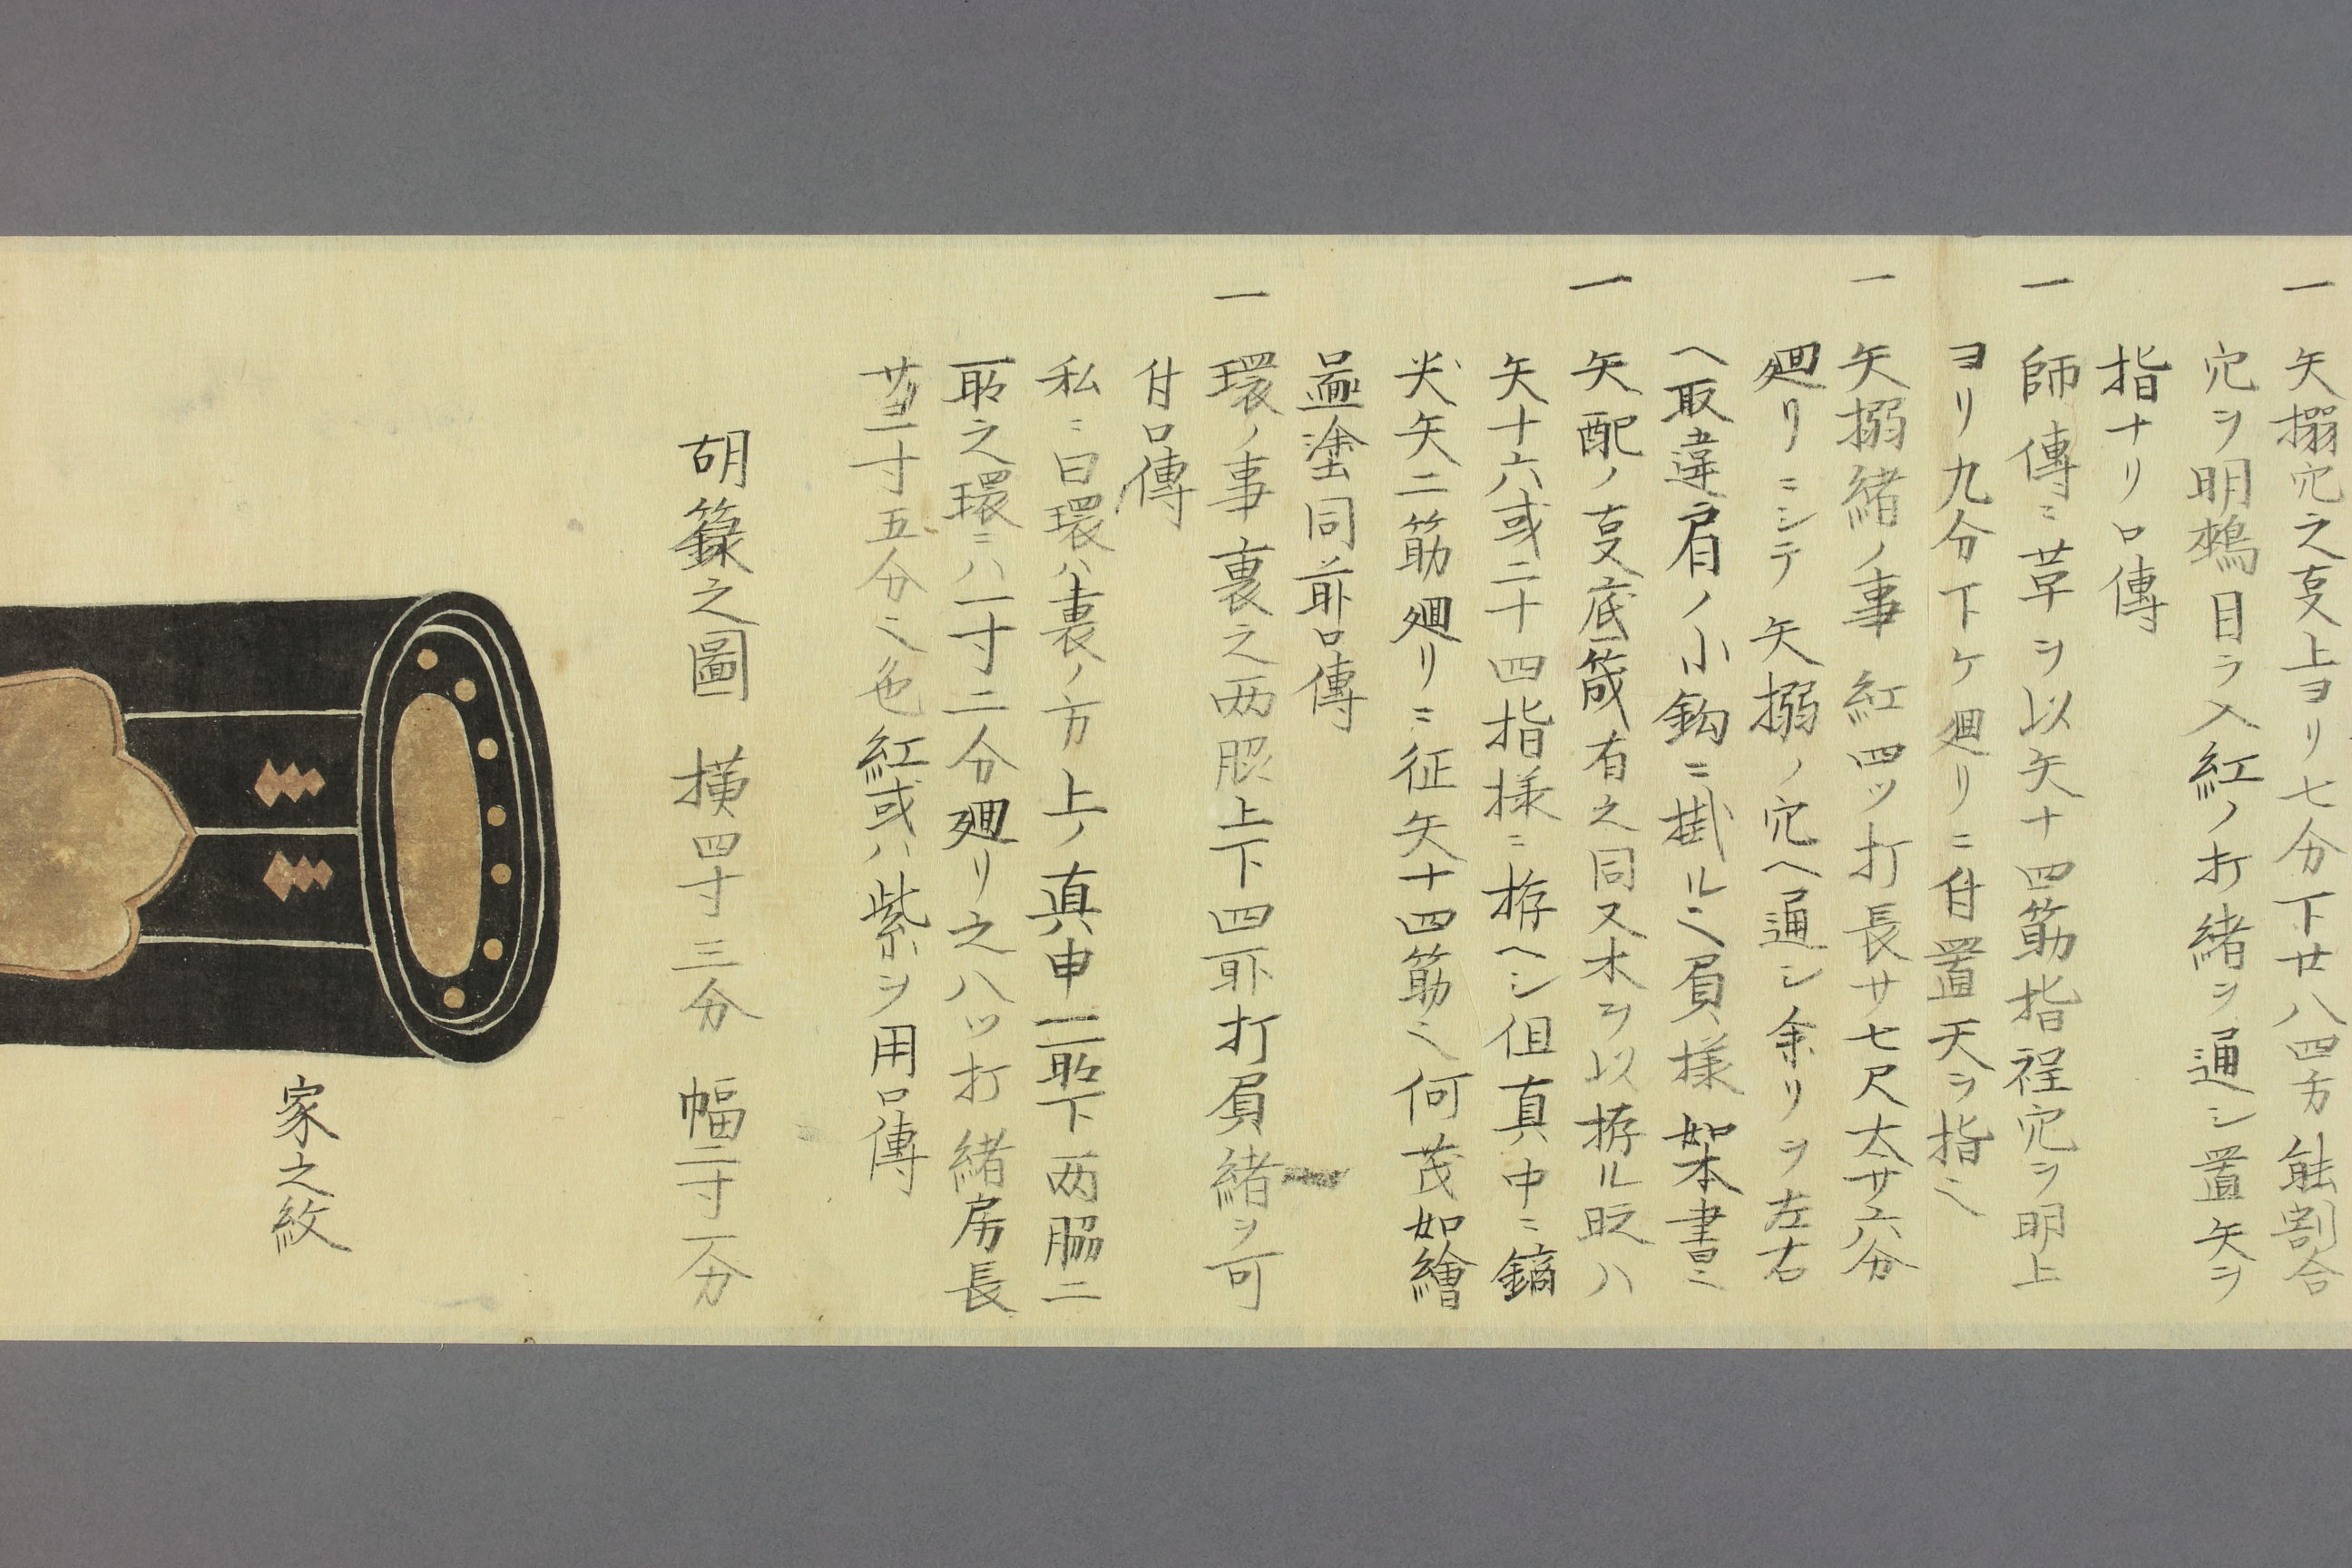 一 矢搦穴之支上ヨリ七分下廿八四方能割合
穴ヲ明鵐目ヲ入紅ノ打緒ヲ通シ置矢ヲ
指ナリ口傳
一 師傳ニ革ヲ以矢十四筋指程穴ヲ明上
ヨリ九分下ケ廻リニ付置矢ヲ指ヘ
一 矢搦緒ノ事 紅四ツ打長サ七尺太サ六分
廻リニシテ矢搦ノ穴ヘ通シ余リヲ左右
ヘ取違肩ノ小鈎ニ掛ルニ肩様如本書ニ
一 矢配ノ支底筬有之同又木ヲ以拵ル眂ハ
矢十六或二十四指様ニ拵ヘシ但真中ニ鏑
矢二筋廻リニ征矢十四筋ヘ何茂如繪
圖塗同前口傳
一 環ノ事裏之两服上下四所打肩緒ヲ可
付口傳
私ニ曰環ハ裏ノ方上ノ真中二所下两脇二
所之環ニハ一寸二分廻リ之八ツ打緒房長
一寸五分ヘ色紅或ハ紫ヲ用口傳
胡籙之圖 横四寸三分 幅二寸一分
家之紋